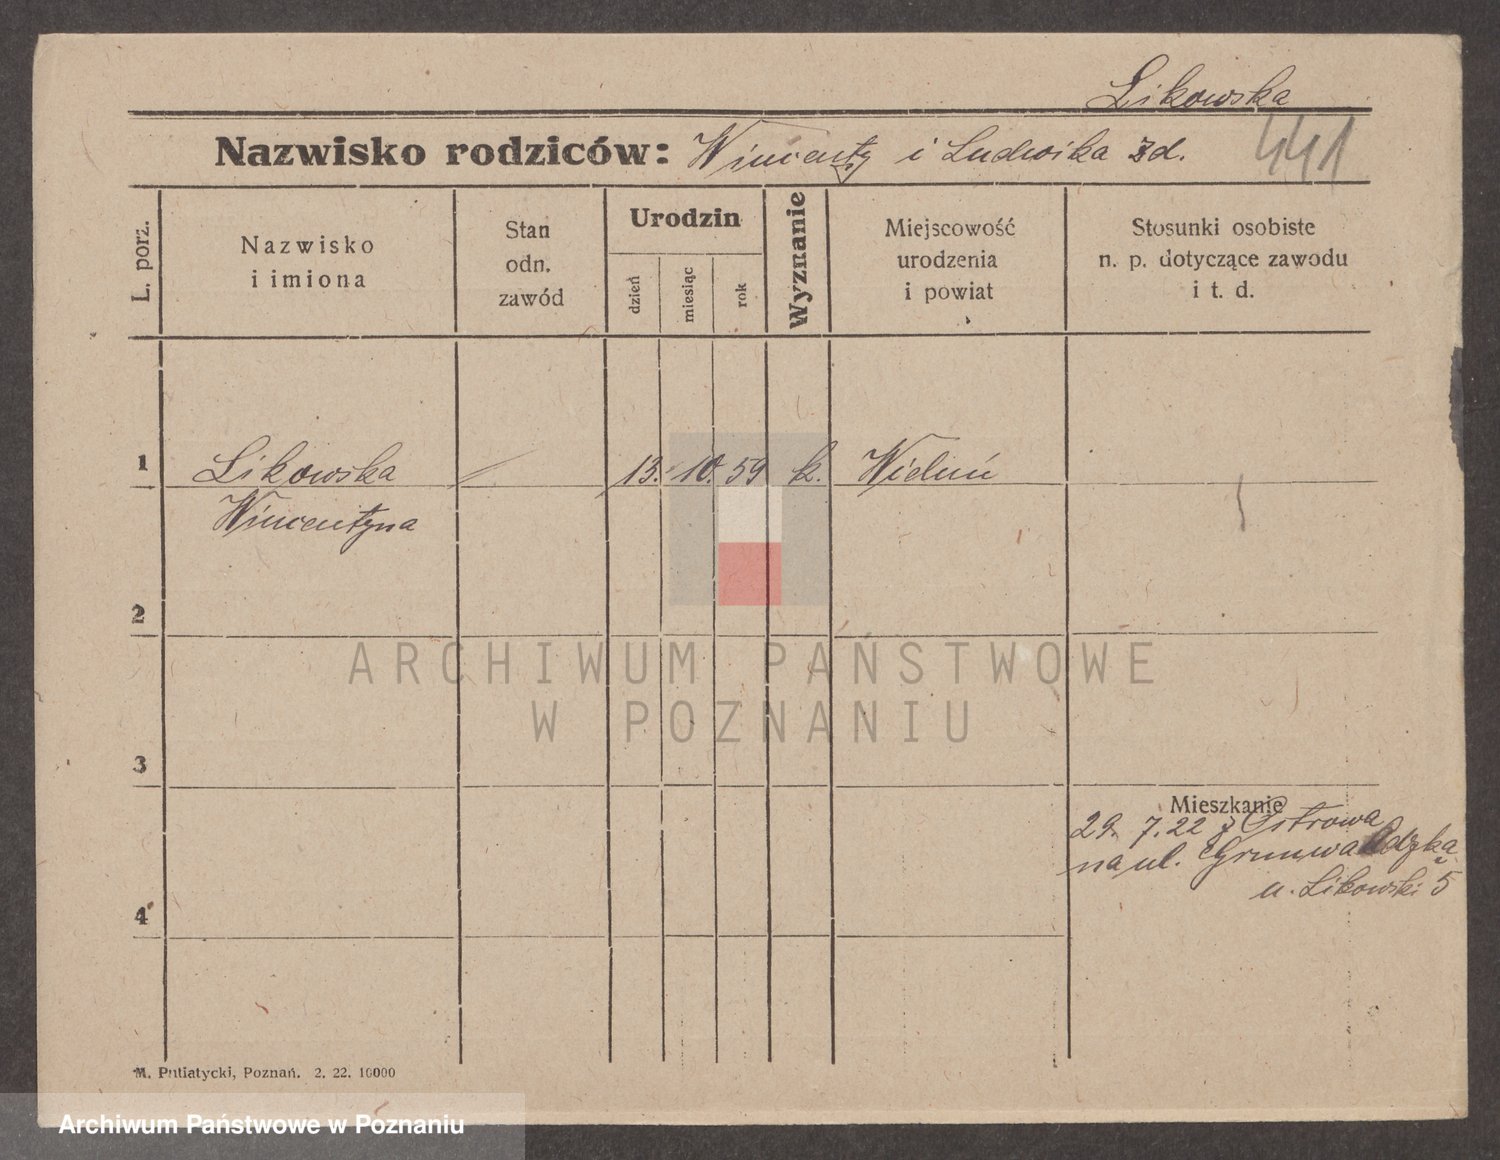 Likowska
Nazwisko rodziców: Wincenty i Ludwika zd.
441
L. porz.
Nazwisko
i imiona
Stan
odn.
zawód
Urodzin
dzień
miesiąc
rok
Wyznanie
Miejscowość
urodzenia
i powiat
Stosunki osobiste
n. p. dotyczące zawodu
i t. d.
1
Likowska 13. 10. 59 k. Wieluń
Wincentyna
2
ARCHIWUM PAŃSTWOWE
W POZNANIU
3
Mieszkanie
29. 7. 22 z Ostrowa
na ul. Grunwaldzka
u. Likowski 5
4
M. Putiatycki, Poznań. 2. 22. 10000
Archiwum Państwowe w Poznaniu